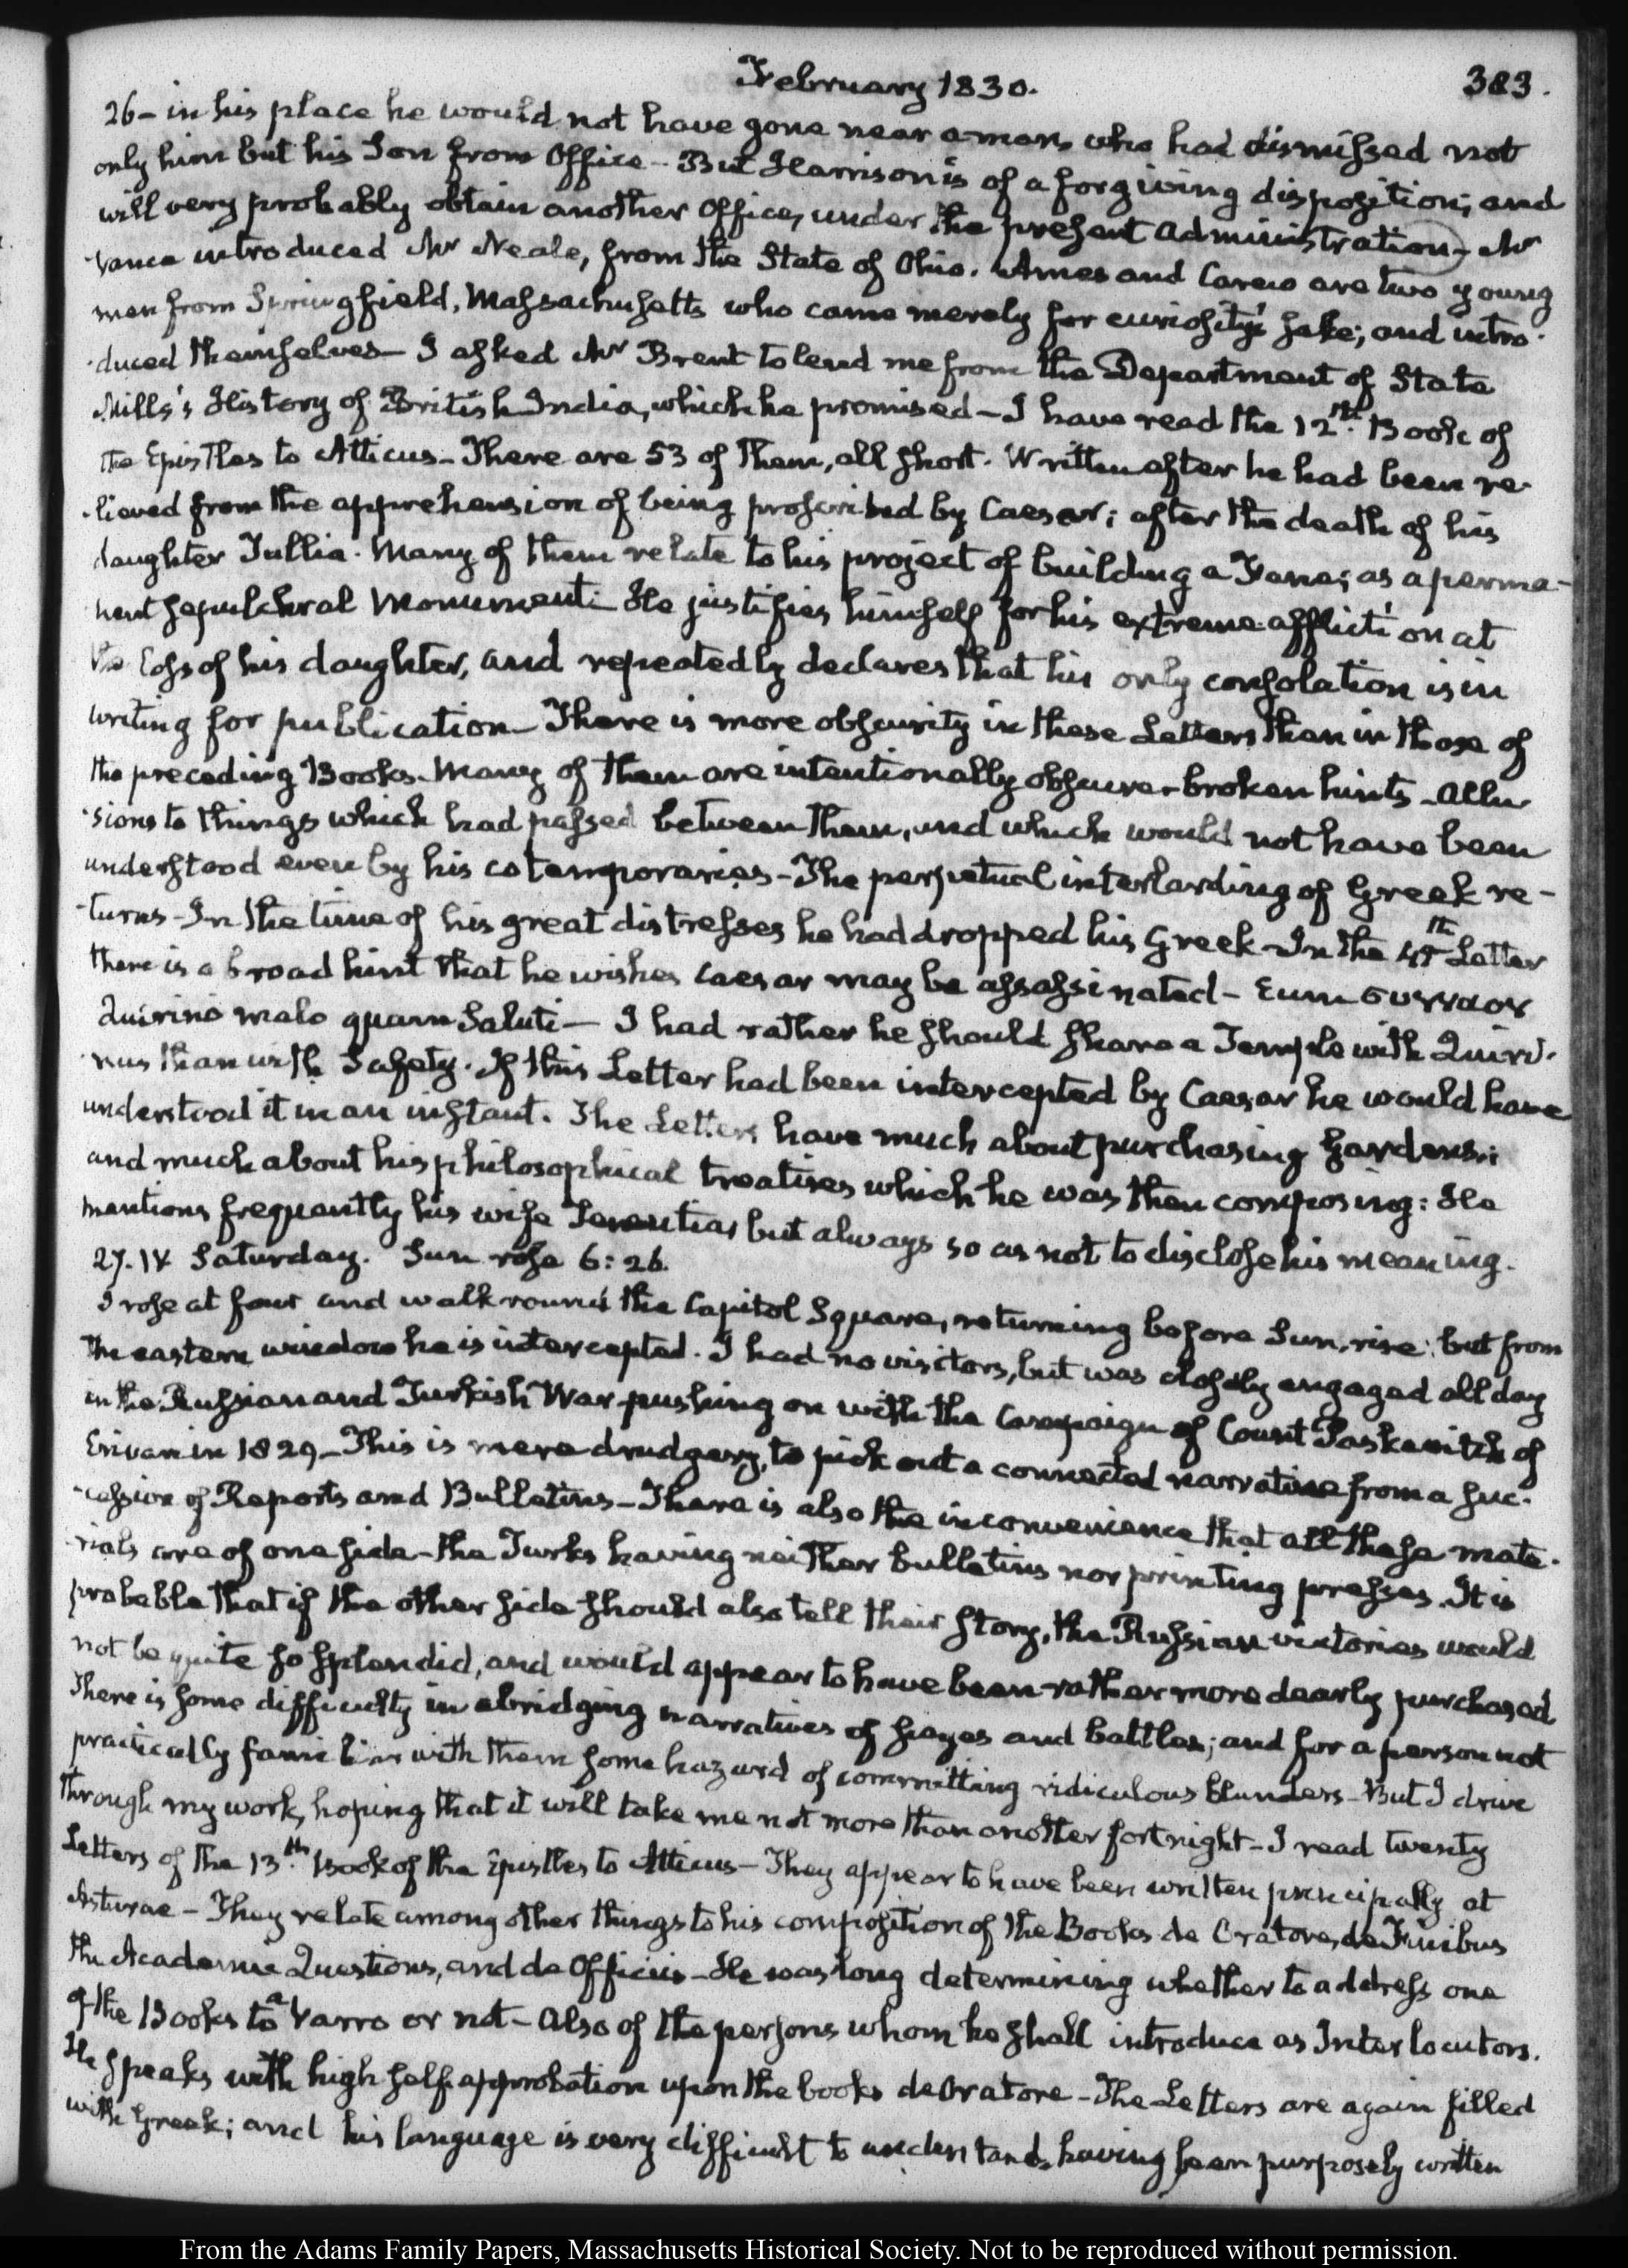 February 1830.
383.
26 – in his place he would not have gone near a man, who had dismissed not
only him but his Son from Office – But Harrison is of a forgiving disposition; and
will very probably obtain another Office, under the present administration – Mr
Vance introduced Mr Neale, from the State of Ohio. Ames and Carew are two young
men from Springfield, Massachusetts who came merely for curiosity's sake; and intro-
-duced themselves – I asked Mr Brent to lend me from the Department of State
Mills's History of British India, which he promised – I have read the 12th. Book of
the Epistles to Atticus – There are 53 of them, all short. Written after he had been re-
-lieved from the apprehension of being proscribed by Caesar; after the death of his
daughter Tullia. Many of them relate to his project of building a Fane; as a perma-
nent sepulchral Monument – He justifies himself for his extreme affliction at
the loss of his daughter, and repeatedly declares that his only consolation is in
writing for publication – There is more obscurity in these Letters than in those of
the preceding Books. Many of them are intentionally obscure – broken hints – allu
-sions to things which had passed between them, and which would not have been
understood even by his cotemporaries – The perpetual interlarding of Greek re-
-turns – In the time of his great distresses he had dropped his Greek – In the 45th Letter
there is a broad hint that he wishes Caesar may be assassinated – Eum συνναον
Quirino malo quam Saluti – I had rather he should share a Temple with Quiri-
nus than with Safety. If this Letter had been intercepted by Caesar he would have
understood it in an instant. The Letters have much about purchasing Gardens;
and much about his philosophical treatises which he was then composing: He
mentions frequently his wife Terentia, but always so as not to disclose his meaning.
27. IV Saturday. Sun rose 6:26.
I rose at four and walk round the Capitol Square, returning before Sun, rise; but from
the eastern window he is intercepted. I had no visitors, but was closely engaged all day
in the Russian and Turkish War pushing on with the Campaign of Count Paskevitch of
Erivan in 1829 – This is mere drudgery, to pick out a connected narrative from a suc-
-cession of Reports and Bulletins – There is also the inconvenience that all these mate-
-rials are of one side – the Turks having neither bulletins nor printing presses. It is
probable that if the other side should also tell their story, the Russian victories would
not be quite so splendid, and would appear to have been rather more dearly purchased
There is some difficulty in abridging narratives of sieges and battles; and for a person not
practically familiar with them some hazard of committing ridiculous blunders – But I drive
through my work, hoping that it will take me not more than another fortnight – I read twenty
Letters of the 13th. Book of the Epistles to Atticus – They appear to have been written principally at
Asturae – They relate among other things to his composition of the Books de Oratore, de Finibus
the Academic Questions, and de Officiis – He was long determining whether to address one
of the Books to Varro or not – also of the persons whom he shall introduce as Interlocutors.
He speaks with high self approbation upon the books de Oratore – The Letters are again filled
with Greek; and his language is very difficult to understand, having been purposely written
From the Adams Family Papers, Massachusetts Historical Society. Not to be reproduced without permission.